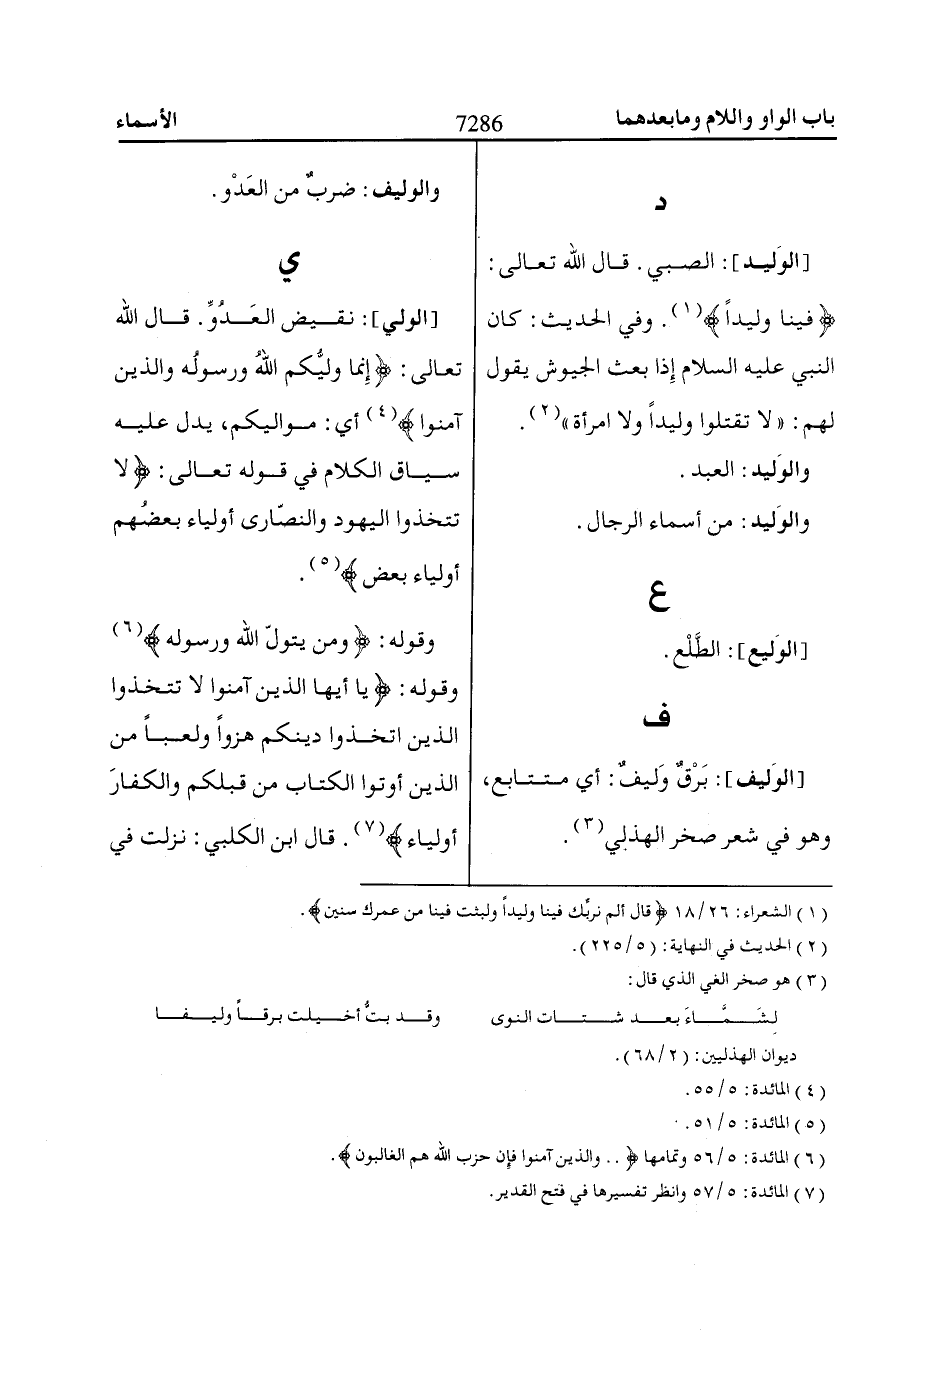 باب الواو واللام ومابعدهما 7286 الأسماء
د
[الوَليد]: الصبي. قال الله تعالى:
﴿فينا وليداً﴾(١). وفي الحديث: كان
النبي عليه السلام إذا بعث الجيوش يقول
لهم: «لا تقتلوا وليداً ولا امرأة»(٢).
والوَليد: العبد.
والوَليد: من أسماء الرجال.
ع
[الوَليع]: الطَّلْع.
ف
[الوَليف]: بَرْقٌ وَليفٌ: أي متتابع،
وهو في شعر صخر الهذلي(٣).
والوليف: ضربٌ من العَدْو.
ي
[الولي]: نقيض العَدُوِّ. قال الله
تعالى: ﴿إنما وليُّكم اللهُ ورسولُه والذين
آمنوا﴾(٤) أي: مواليكم، يدل عليه
سياق الكلام في قوله تعالى: ﴿لا
تتخذوا اليهود والنصّارى أولياء بعضُهم
أولياء بعض﴾(٥).
وقوله: ﴿ومن يتولّ الله ورسوله﴾(٦)
وقوله: ﴿يا أيها الذين آمنوا لا تتخذوا
الذين اتخذوا دينكم هزواً ولعباً من
الذين أوتوا الكتاب من قبلكم والكفارَ
أولياء﴾(٧). قال ابن الكلبي: نزلت في
(١) الشعراء: ٢٦/ ١٨ ﴿قال ألم نربِّك فينا وليداً ولبثت فينا من عمرك سنين﴾.
(٢) الحديث في النهاية: (٥/ ٢٢٥).
(٣) هو صخر الغي الذي قال:
لشَمَّاءَ بعد شتات النوى وقد بتُّ أخيلت برقاً وليفا
ديوان الهذليين: (٢/ ٦٨).
(٤) المائدة: ٥/ ٥٥.
(٥) المائدة: ٥/ ٥١.
(٦) المائدة: ٥/ ٥٦ وتمامها ﴿.. والذين آمنوا فإن حزب الله هم الغالبون﴾.
(٧) المائدة: ٥/ ٥٧ وانظر تفسيرها في فتح القدير.